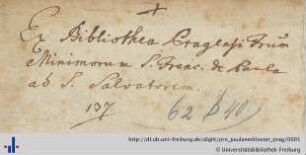 Ex Bibliotheca Pragensi Frum
Minimorum S. Franc. de Paula
ad S. Salvatorem.
137 62 B 40
http://dl.ub.uni-freiburg.de/diglit/pro_paulanerkloster_prag/0001
© Universitätsbibliothek Freiburg